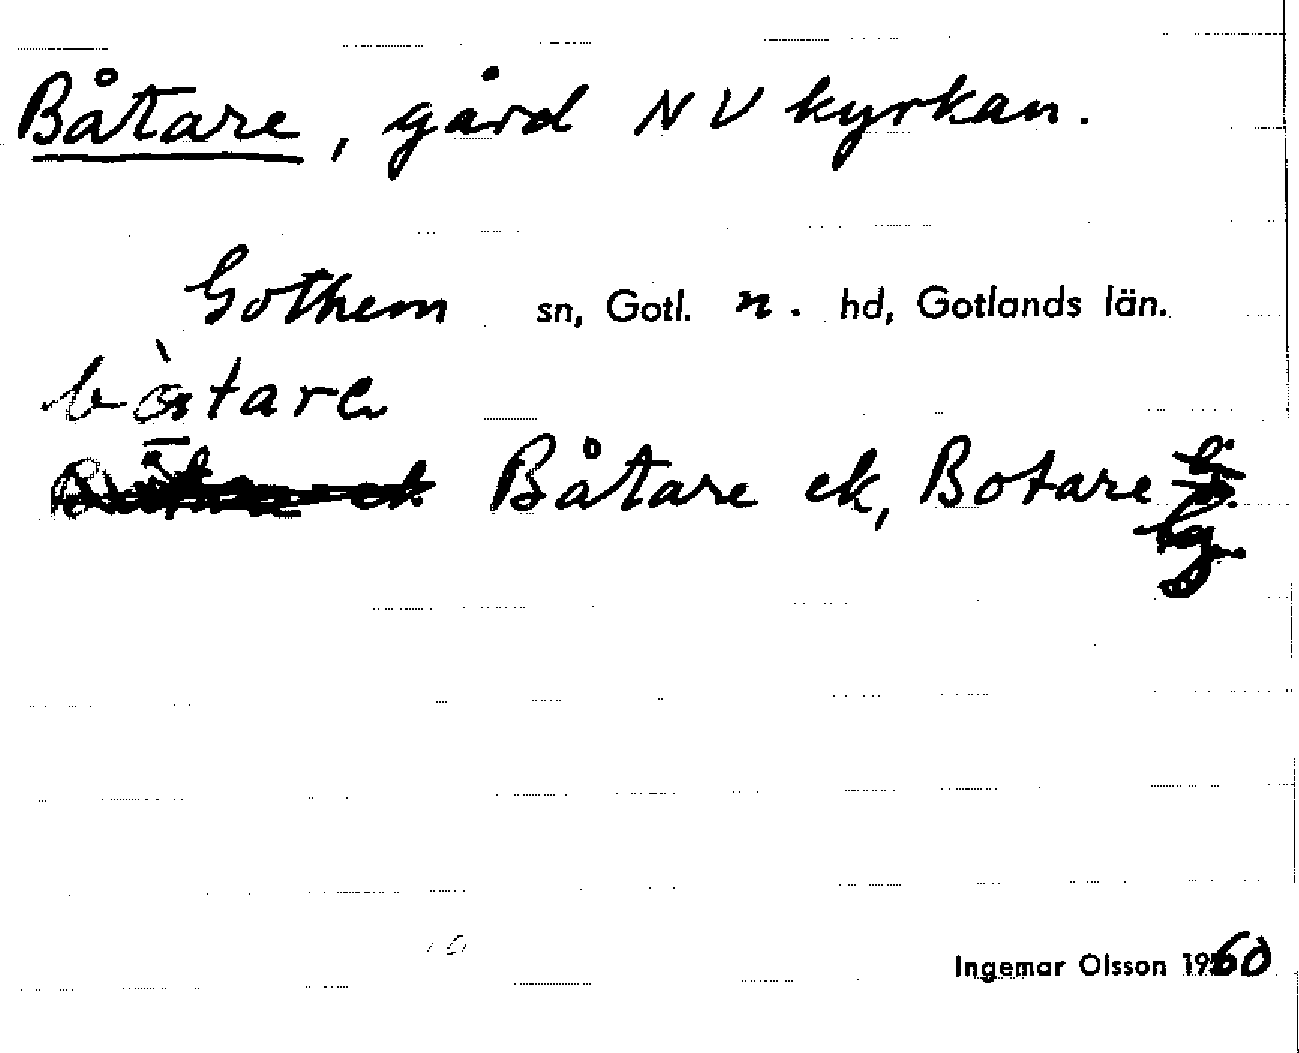 Båtare, gård NV kyrkan.
Gothem sn, Gotl. n. hd, Gotlands län.
bòtare
Båtare ek, Botare
Ingemar Olsson 1960